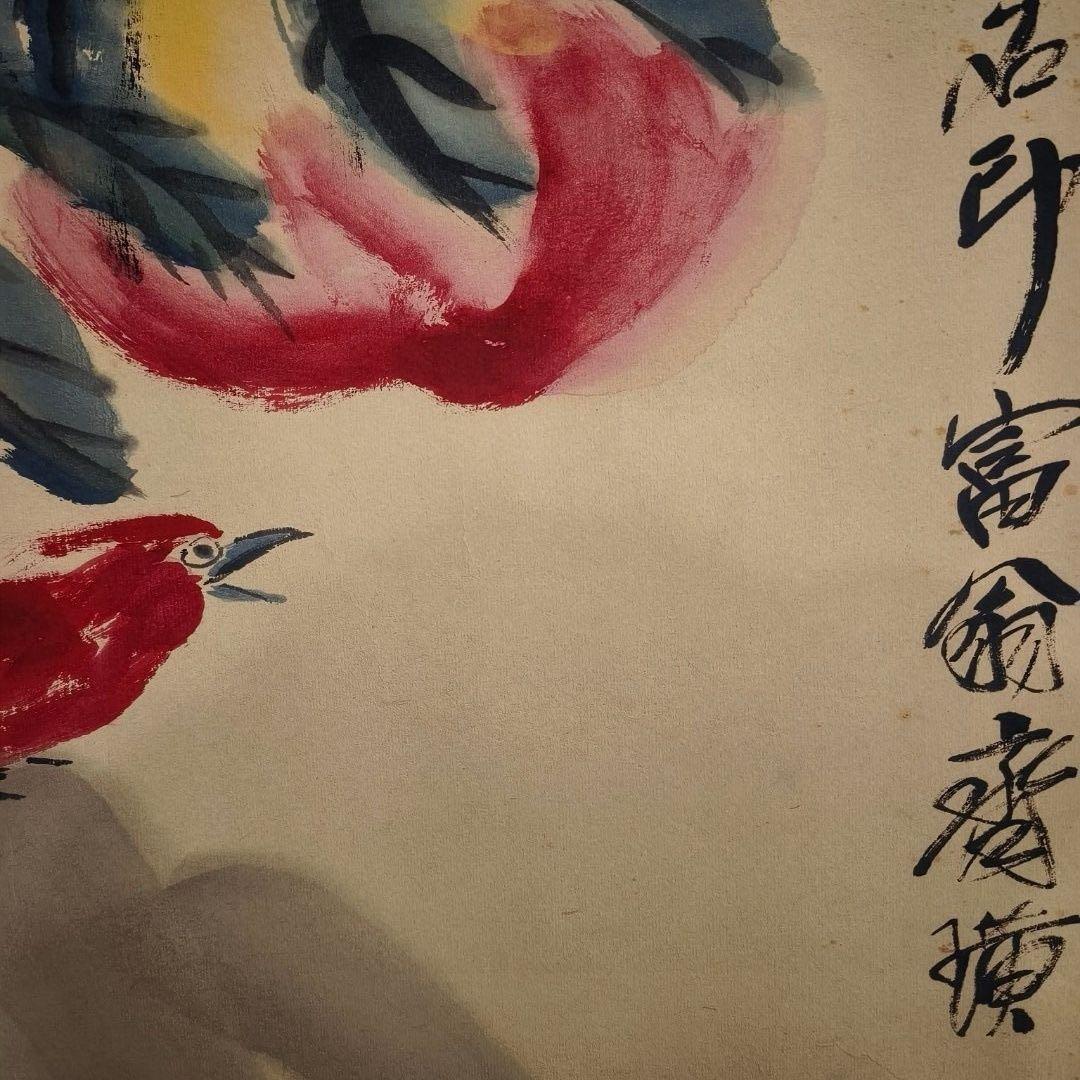 石印富翁齊璜